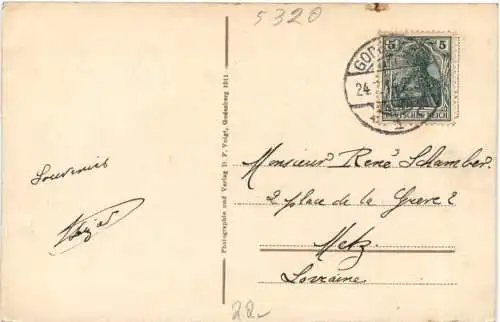 5320
5 5
DEUTSCHES REICH
GOD
24.
Photographie und Verlag D. F. Voigt, Godesberg 1911
Souvenir
Monsieur René Schamber.
2 place de la Greve 2
Metz
Lorraine
22-